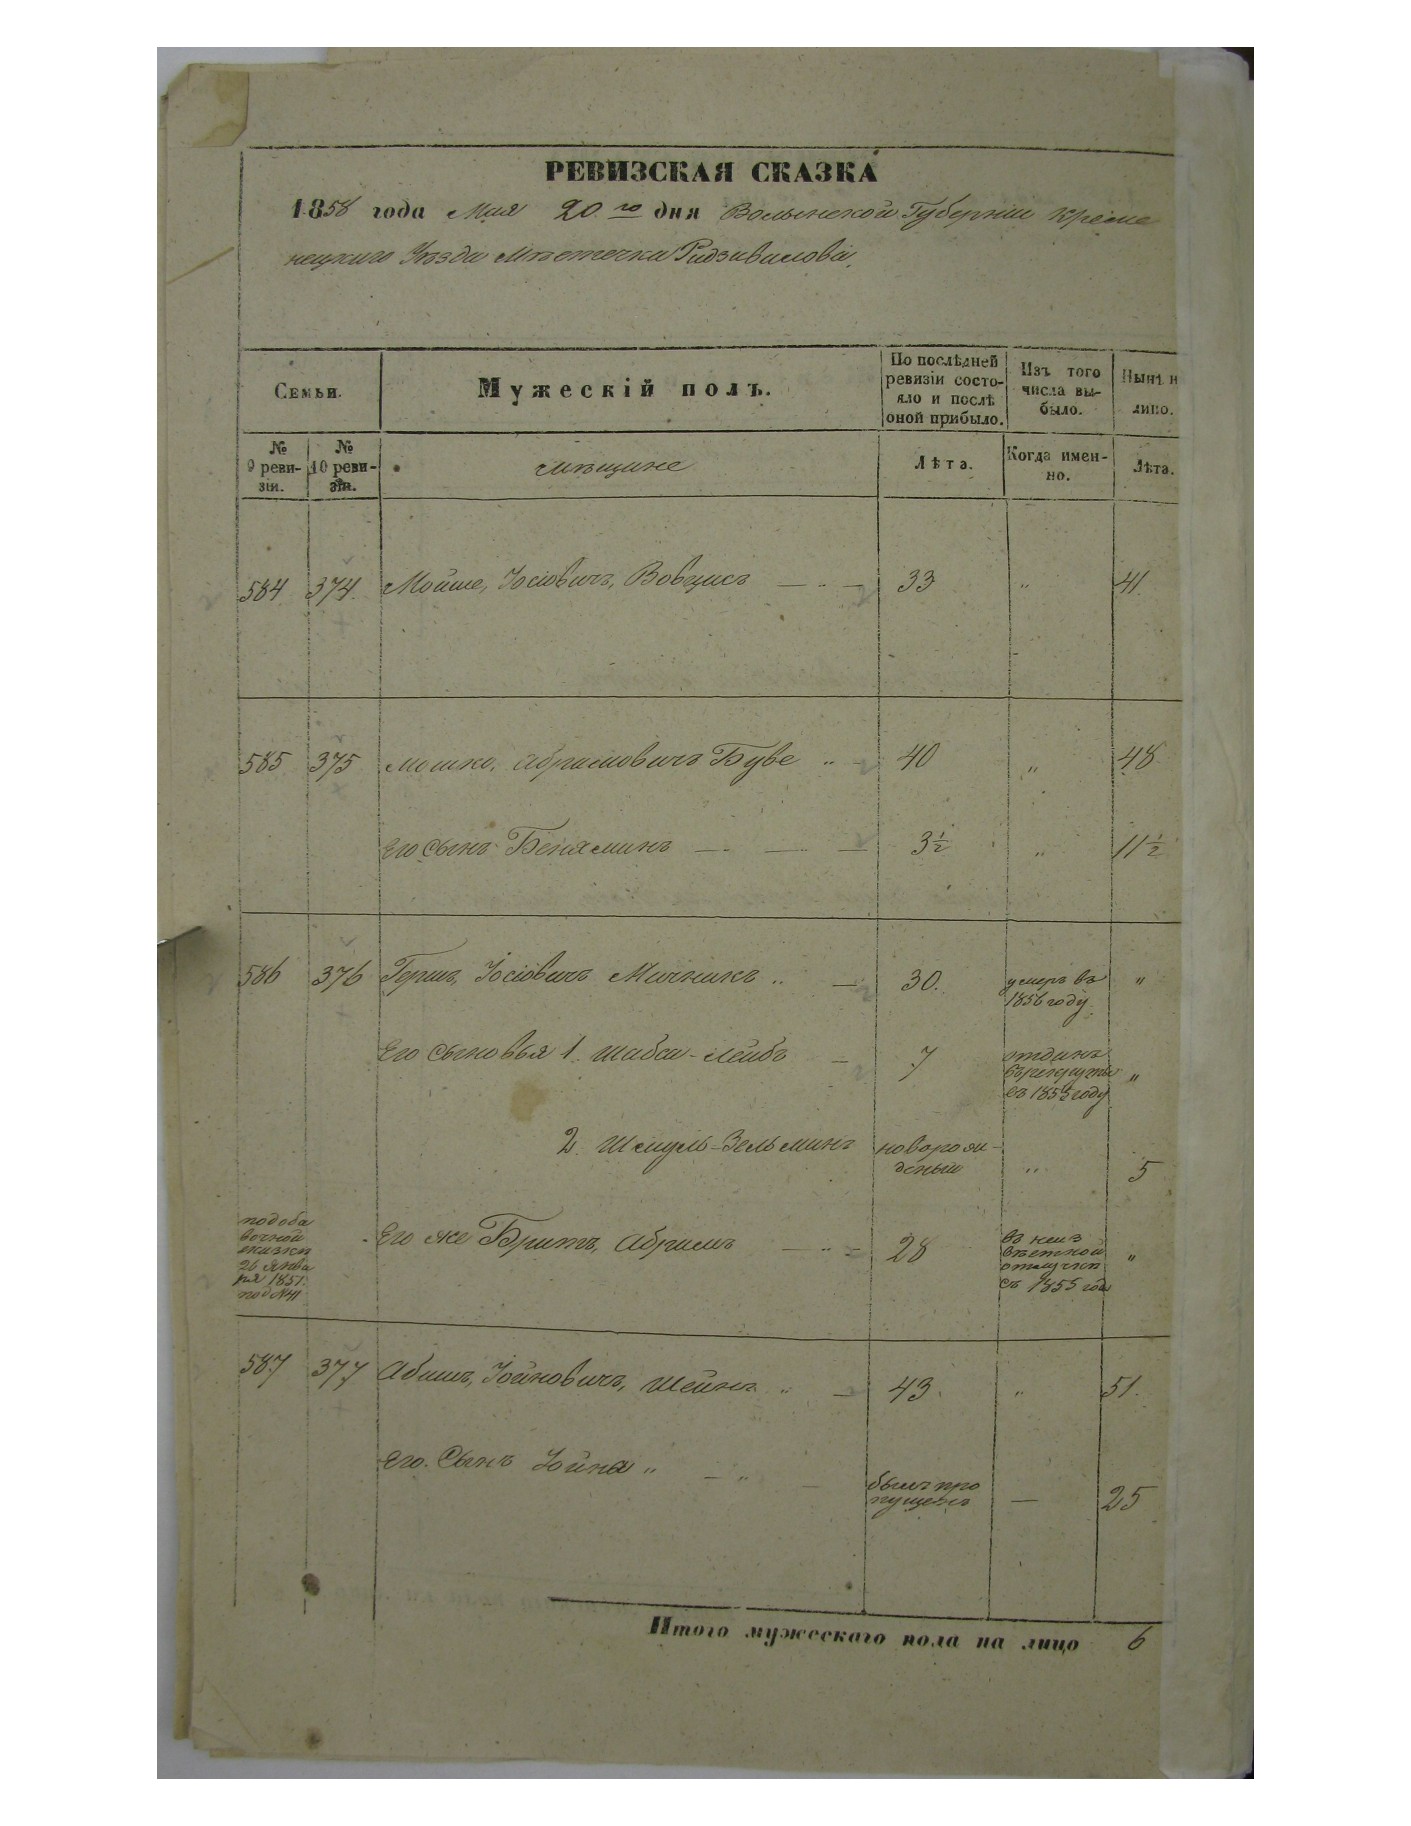 РЕВИЗСКАЯ СКАЗКА
1858 года Мая 20го дня Волынской Губерніи Креме
нецкаго Уѣзда Мѣстечка Радзивилова
Семьи.
Мужескій полъ.
По послѣдней
ревизіи состо-
яло и послѣ
оной прибыло.
Изъ того
числа вы-
было.
Нынѣ н
лицо.
№
9 реви-
зіи.
№
10 реви-
зіи.
мѣщане
Лѣта.
Когда имен-
но.
Лѣта.
584 374. Мойше, Іосіовичъ, Вовцисъ — „ — 33 „ 41.
585 375 Мошко, Абрамовичъ Буве „ — 40 „ 48
Его Сынъ Беніяминъ — — — 3½ „ 11½
586 376 Гершъ, Іосіовичъ Мичникъ „ — 30. умеръ въ „
1856 году.
Его Сыновья 1. Шабса-Лейбъ — 7 отданъ
въ рекруты „
въ 1855 году
2. Шмуль-Зельминъ новорож-
денный „ 5
подоба
вочной
сказки
26 Янва
ря 1851.
под №41
Его же Братъ, Абрамъ — „ — 28 въ неиз
вѣстной „
отлучкѣ
съ 1855 года
587. 377. Абишъ, Іойновичъ, Шейнъ „ — 43. „ 51.
Его. Сынъ Іойна „ — „ —
былъ про
пущенъ — 25
Итого мужескаго пола на лицо 6